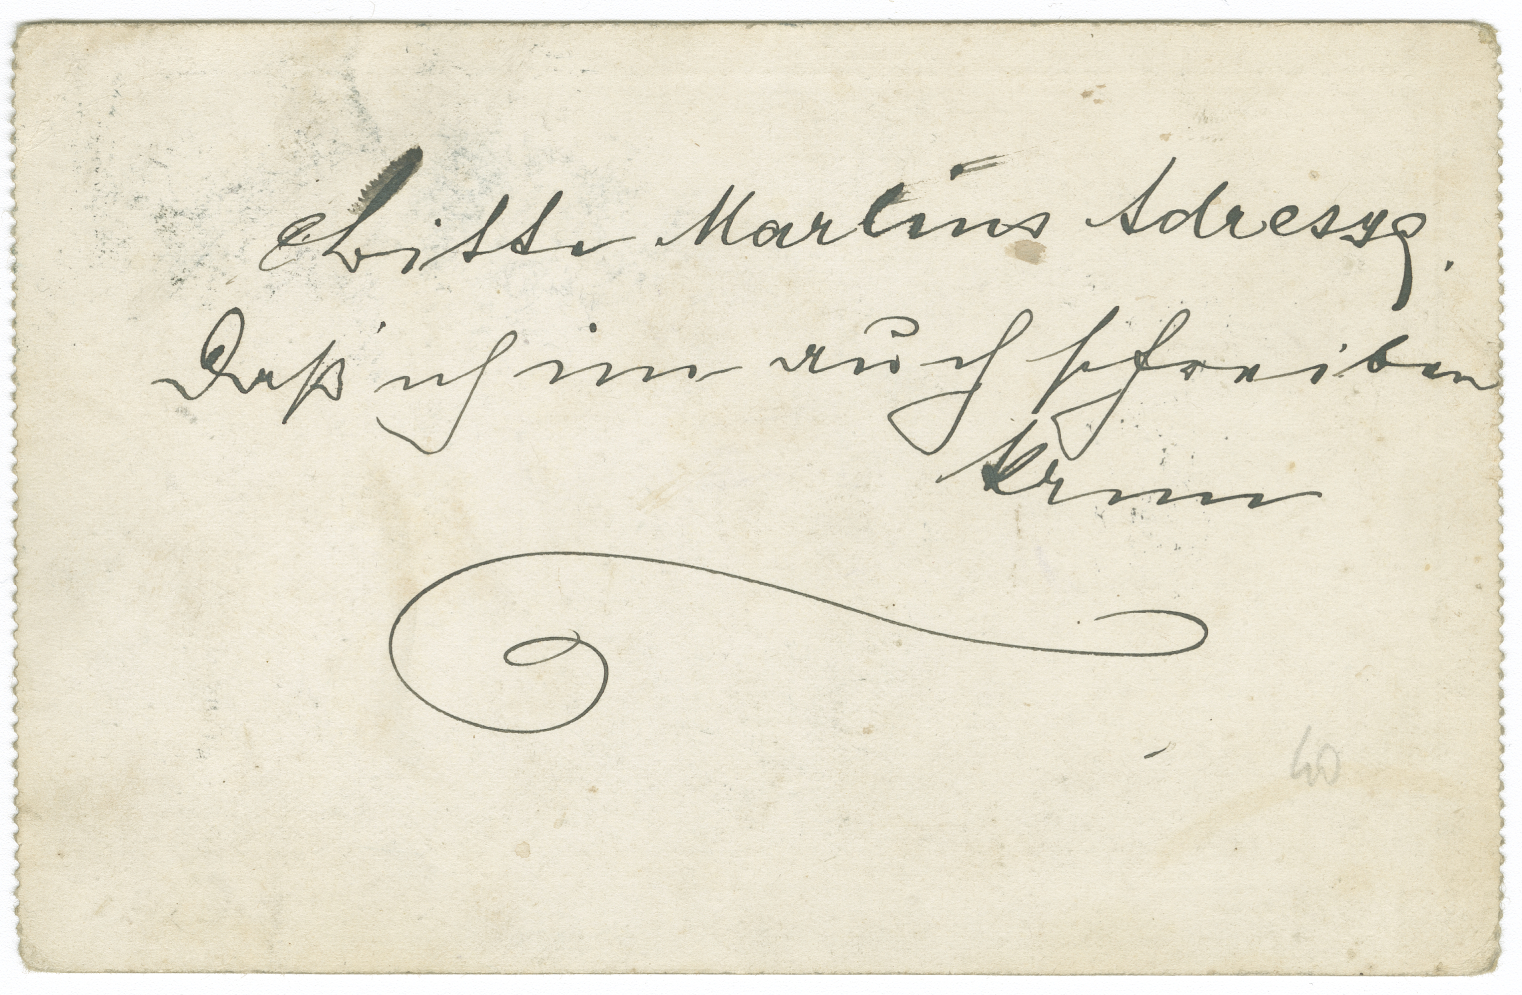 Bitte Martins Adresse.
Daß ich im auch schreiben
kann
60